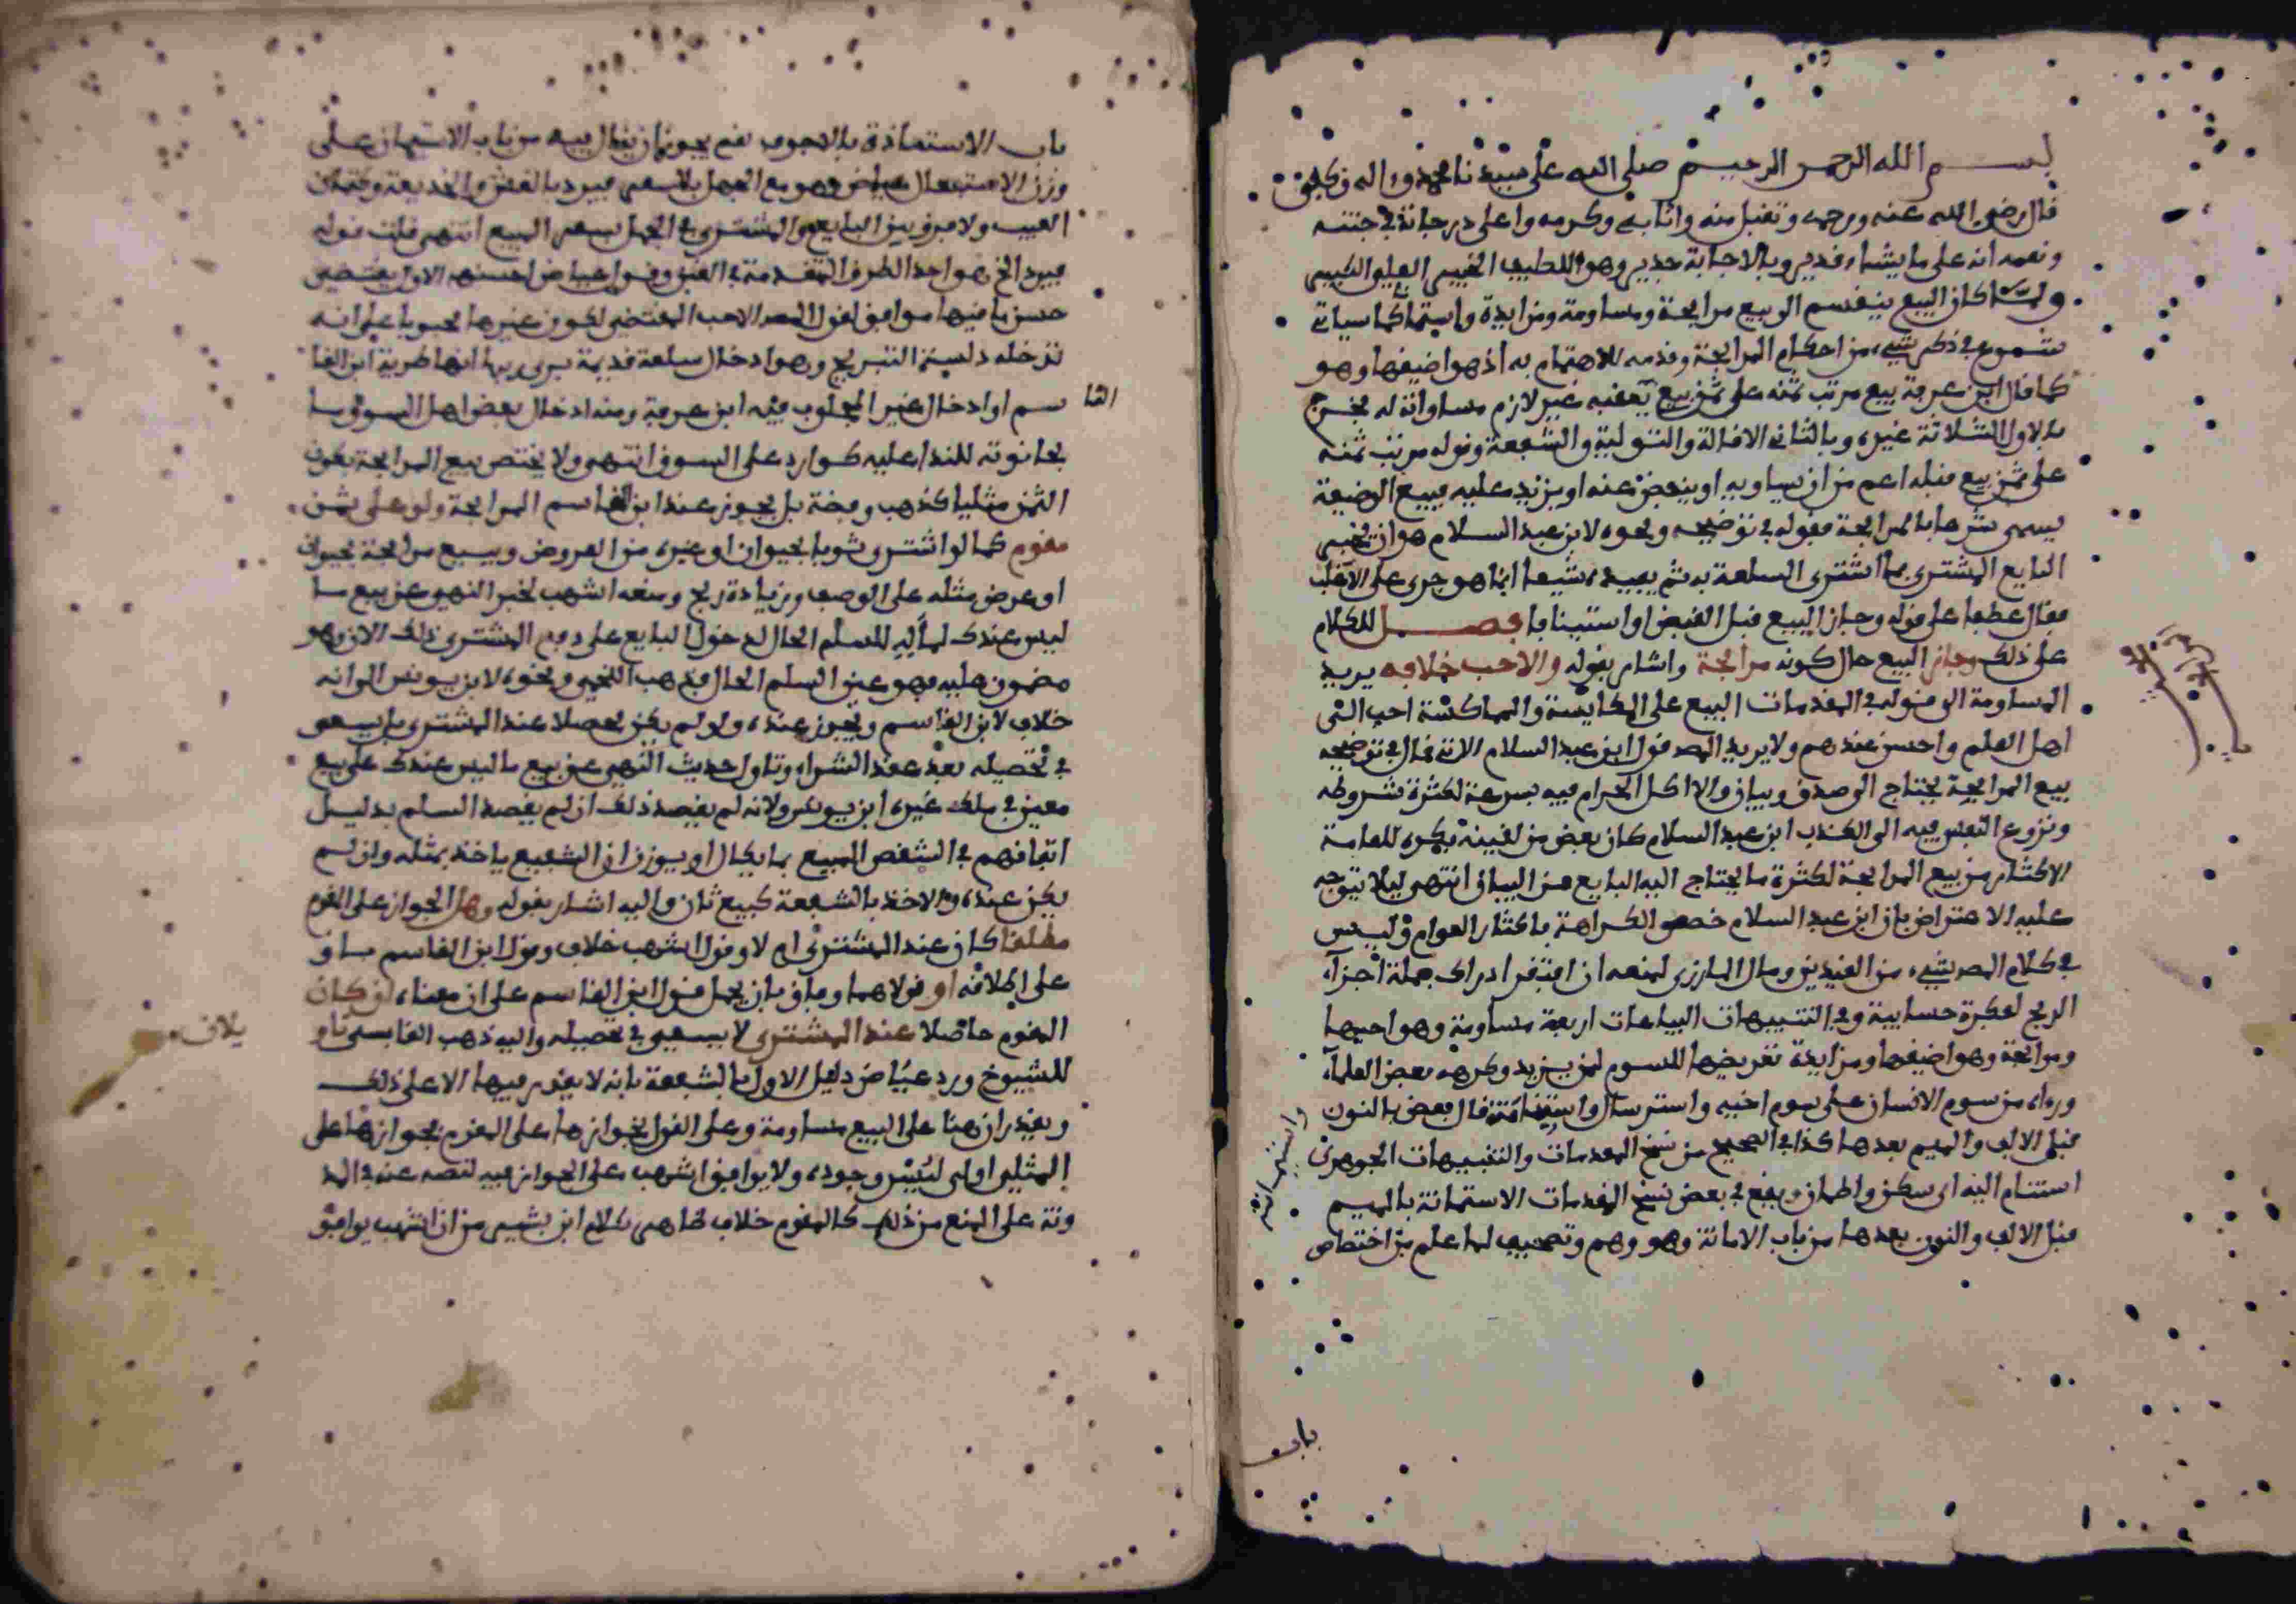 بســـم الله الرحمن الرحيم صلى الله على سيدنا محمد واله
قال رضي الله عنه ورحمه وتقبل منه واثابه وكرمه واعلى درجاته في جنته
ونعمه انه على ما يشاء قدير وبالاجابة جدير وهو اللطيف الخبير العلي الكبير
ولما كان البيع ينقسم الى بيع مرابحة ومساومة ومزايدة واستئمان كما سياتي
شرع في ذكر شيء من احكام المرابحة وقدمه للاهتمام به اذ هو اضيقها وهو
كما قال ابن عرفة بيع مرتب ثمنه على ثمن بيع تعقبه غير لازم مساواته له فخرج
بالاول الثلاثة غيره وبالثاني الاقالة والتولية والشفعة وقوله مرتب ثمنه
على ثمن بيع قبله اعم من ان يساويه او ينقص عنه او يزيد عليه فبيع الوضيعة
يسمى شرعا بالمرابحة فقوله في توضيحه ونحوه لابن عبد السلام هو ان يخبر
البايع المشتري بما اشترى السلعة به ثم يفيده شيئا انما هو جرى على الاغلب
فقال عطفا على قوله وجاز البيع قبل القبض او استينافا فصــل للكلام
على ذلك وجاز البيع حال كونه مرابحة واشار بقوله والاحب خلافه يريد
المساومة الى قوله في المقدمات البيع على المكايسة والمماكسة احب الى
اهل العلم واحسن عندهم ولا يريد المص قول ابن عبد السلام الاتي قال في توضيحه
بيع المرابحة يحتاج الى صدق وبيان والا اكل الحرام فيه بسرعة لكثرة شروطه
ونزوع النفس فيه الى الكذب ابن عبد السلام كان بعض من لقيته يكره للعامة
الاكثار من بيع المرابحة لكثرة ما يحتاج اليه البايع من البيان انتهى ليلا يتوجه
عليه الاعتراض بان ابن عبد السلام خص الكراهة باكثار العوام وليس
في كلام المص شيء من القيدين ومال المازري لمنعه ان افتقر ادراك جملة اجزاء
الربح لفكرة حسابية وفي التنبيهات البياعات اربعة مساومة وهو احبها
ومرابحة وهو اضيقها ومزايدة تعريضها للسوم لمن يزيد وكرهه بعض العلماء
ورءاه من سوم الانسان على سوم اخيه واسترسال واستنامة قال بعض بالنون
قبل الالف والميم بعدها كذا في الصحيح من نسخ المقدمات والتنبيهات الجوهري
استنام اليه اي سكن واطمان ويقع في بعض نسخ المقدمات الاستمانة بالميم
قبل الالف والنون بعدها من باب الامانة وهو وهم وتصحيف لما علم من اختصاص
باب
باب الاستعاذة بالاجوف نعم يجوز ان يقال فيه من باب الاستئمان على
وزن الاستفعال عياض وهو مع الجهل بالسعر فيرد بالغش والخديعة وكتمان
العيب ولا فرق بين البايع والمشتري في الجهل بسعر المبيع انتهى قلت قوله
فيرد الخ هو احد الطرق المتقدمة في الغبن وقول عياض احسنها الاول يقتضي
حسن ما فيها موافق لقول المص الاحب المقتضي لكون غيرها محبوبا على انه
تدخله دلسة التبريح وهو ادخال سلعة قديمة يرى ربها انها طرية ابن القا
سم او ادخال غير المجلوب فيه ابن عرفة ومنه ادخال بعض اهل السوق ما
بحانوته للنداء عليه كوارد على السوق انتهى ولا يختص بيع المرابحة بكون
الثمن مثليا كذهب وفضة بل يجوز عند ابن القاسم المرابحة ولو على ثمن
مقوم كما لو اشترى ثوبا بحيوان او غيره من العروض ويبيع مرابحة بحيوان
او عرض مثله على الوصف وزيادة ربح ومنعه اشهب لخبر النهي عن بيع ما
ليس عندك لمآله للسلم الحال لدخول البايع على دفع المشتري ذلك الان وهو
مضمون عليه فهو عين السلم الحال فذهب اللخمي ونحوه لابن يونس الى انه
خلاف لابن القاسم ويجوز عنده ولو لم يكن محصلا عند المشتري بل يسعى
في تحصيله بعد عقد الشراء وتاول حديث النهي عن بيع ما ليس عندك على بيع
معين في ملك غيره ابن يونس ولانه لم يقصد ذلك اذ لم يقصد السلم بدليل
اتفاقهم في الشقص المبيع بما يكال او يوزن ان الشفيع ياخذ بمثله وان لم
يكن عنده والاخذ بالشفعة كبيع ثان واليه اشار بقوله وهل الجواز على المقوم
مطلقا كان عند المشتري ام لا وقول اشهب خلاف وقول ابن القاسم باق
على اطلاقه او قولاهما وفاق بان يحمل قول ابن القاسم على ان معناه ان كان
المقوم حاصلا عند المشتري لا يسعى في تحصيله واليه ذهب الفاسي تاو
يلان
للشيوخ ورد عياض دليل الاول بالشفعة بانه لا يقدر فيها الا على ذلك
ويقدر ان هنا على البيع مساومة وعلى القول بجوازها على المقوم فجوازها على
المثلي اولى لتيسر وجوده ولا يوافق اشهب على الجواز فيه لنصه عنه في المد
ونة على المنع من ذلك كالمقوم خلاف ظاهر كلام ابن بشير من ان اشهب يوافق